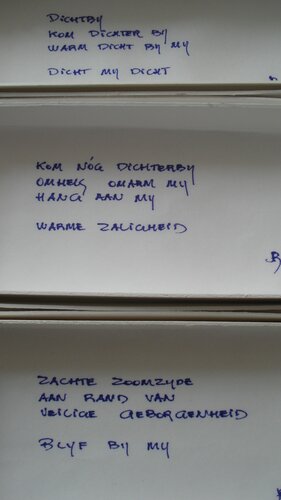 DICHTBY
KOM DICHTER BY
WARM DICHT BY MY
DICHT MY DICHT
KOM NÓG DICHTERBY
OMHELS OMARM MY
HANG AAN MY
WARME ZALIGHEID
ZACHTE ZOOMZYDE
AAN RAND VAN
VEILIGE GEBORGENHEID
BLYF BY MY